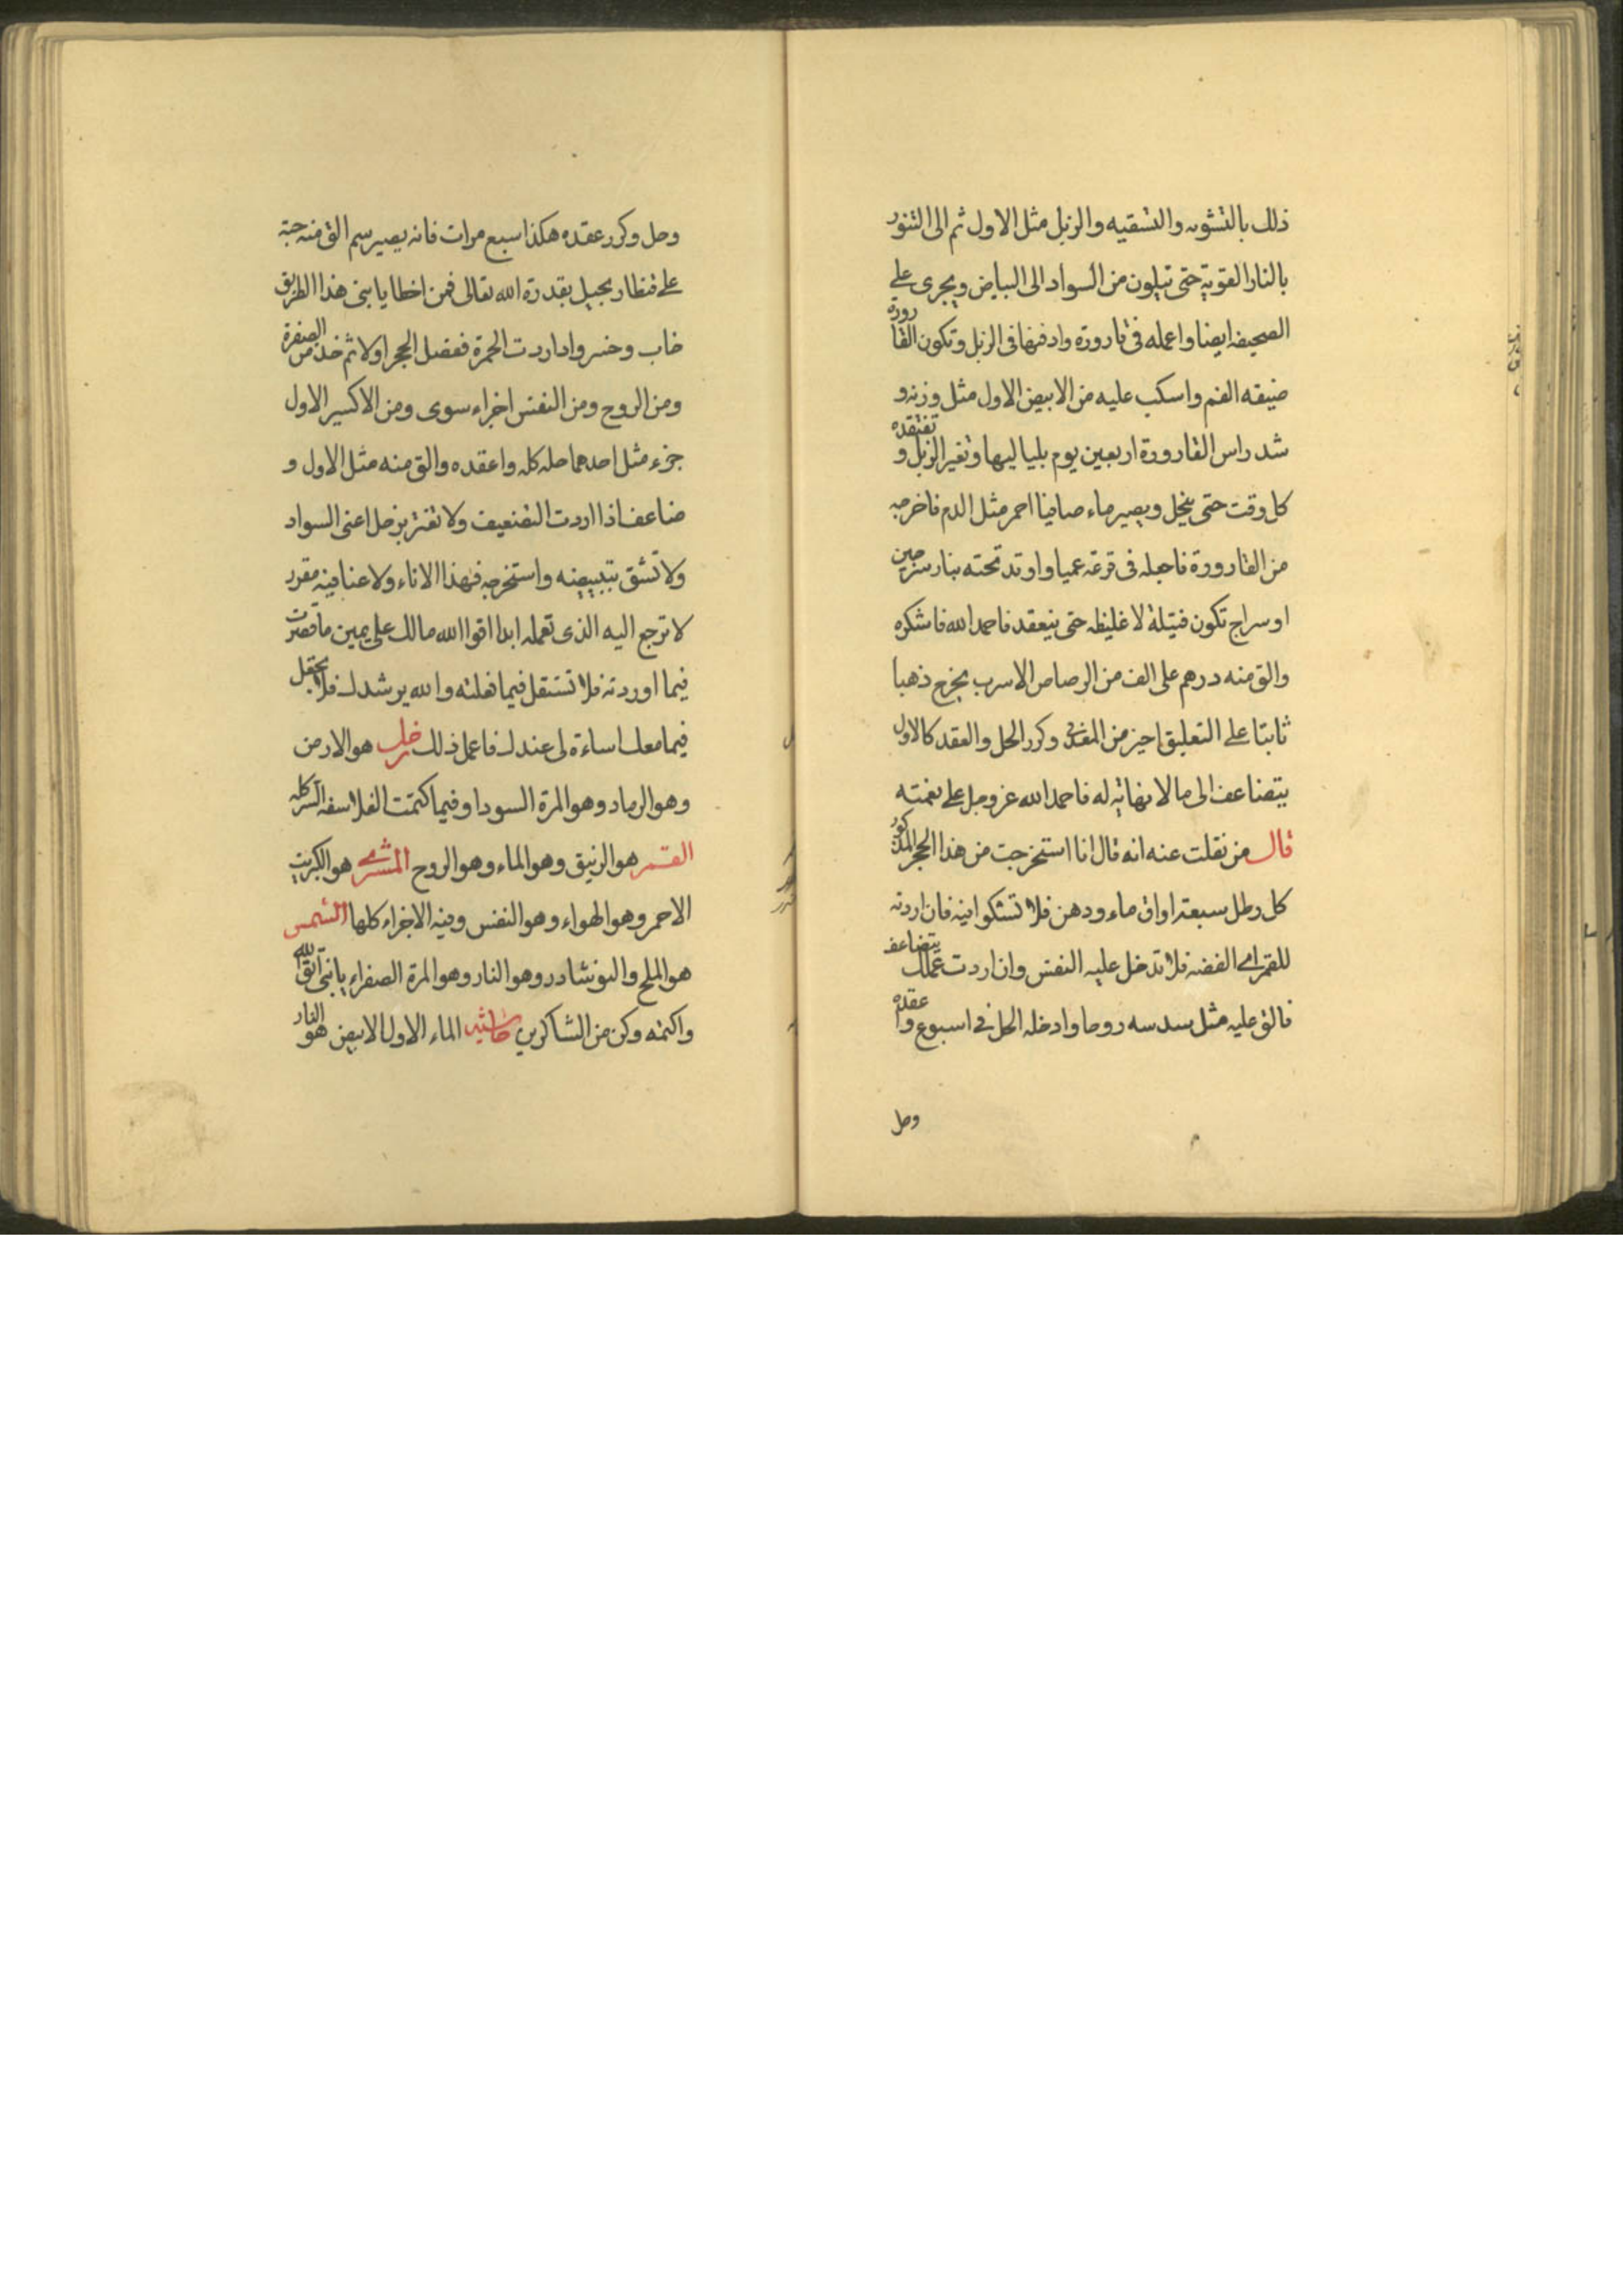 ذلك بالتشويه والتسقيه والزبل مثل الاول ثم الى التنور
بالنار القوية حتى تيلون من السواد الى البياض ويجرى على
الصحيفه ايضا واعمله فى قارورة وادفنها فى الزبل وتكون القارورة
ضيقه الفم واسكب عليه من الابيض الاول مثل وزنه و
شد راس القارورة اربعين يوم بلياليها وتغير الزبل وتفتقده
كل وقت حتى ينحل ويصير ماء صافيا احمر مثل الدم فاخرجه
من القارورة فاجعله فى قرعه عميا واوتد تحته بنار سرجين
او سراج تكون فتيلة لا غليظه حتى ينعقد فاحمد الله فاشكره
والق منه درهم على الف من الرصاص الاسرب يخرج ذهبا
ثابتا على التعليق احيز من المعدنى وكرر الحل والعقد كالاول
يتضاعف الى ما لا نهاية له فاحمد الله عز وجل على نعمته
قال من نقلت عنه انه قال انا استخرجت من هذا الحجر المذكور
كل رطل سبعة اواق ماء ودهن فلا تشكوا فيه فان اردته
للقمر اى الفضه فلا تدخل عليه النفس وان اردت عملك يتضاعف
فالق عليه مثل سدسه روحا وادخله الحل فى اسبوع واعقده
وحل
وحل وكرر عقده هكذا سبع مرات فانه يصير سم الق منه حبة
على قنطار بجبل بقدرة الله تعالى فمن اخطا يا بنى هذا الطريق
خاب وخسر واذا اردت الحمرة ففصل الحجر اولا ثم خذ من الصفرة
ومن الروح ومن النفس اجزاء سوى ومن الاكسير الاول
جزء مثل احدهما حله كله واعقده والق منه مثل الاول و
ضاعف اذا اردت التضعيف ولا تغتر بزحل اعنى السواد
ولا تشق بتبييضه واستخرجه فهذا الاناء ولا عنا فيه مقرر
لا ترجع اليه الذى تعمله ابدا اقوا الله مالك على يمين ما قصرت
فيما اوردته فلا تستقل فيما فعلته والله يرشدك فلا تجعل
فيما معك اساءة لى عندك فاعمل ذلك زحل هو الارض
وهو الرماد وهو المرة السودا وفيما كتمت الفلاسفه السر كله
القمر هو الزيبق وهو الماء وهو الروح المشترى هو الكبريت
الاحمر وهو الهواء وهو النفس وفيه الاجزاء كلها الشمس
هو الملح والنوشادر وهو النار وهو المرة الصفراء يا بنى اتق الله
واكتمه وكن من الشاكرين حاشيه الماء الاول الابيض هو النار